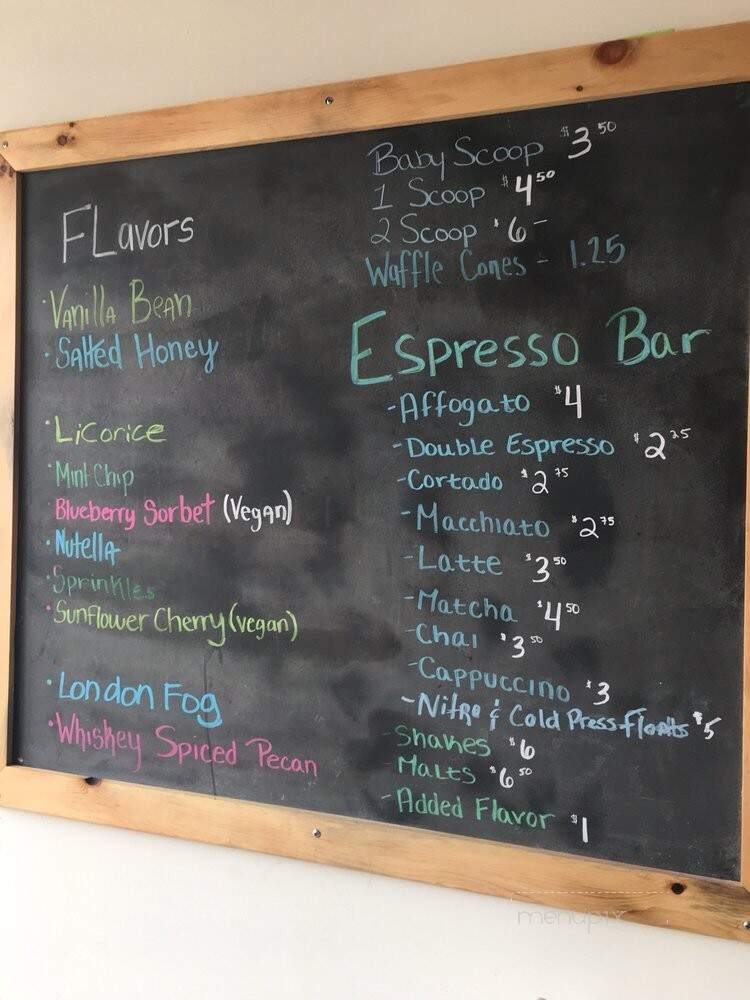 FLavors
· Vanilla Bean
· Salted Honey
· Licorice
· Mint Chip
Blueberry Sorbet (Vegan)
· Nutella
· Sprinkles
· Sunflower Cherry (vegan)
· London Fog
· Whiskey Spiced Pecan
Baby Scoop $3 50
1 Scoop $4 50
2 Scoop $6 –
Waffle Cones - 1.25
Espresso Bar
- Affogato $4
- Double Espresso $2 25
- Cortado $2 75
- Macchiato $2 75
- Latte $3 50
- Matcha $4 50
- Chai $3 50
- Cappuccino $3
- Nitro & Cold Press floats $5
- Shakes $6
- Malts $6 50
- Added Flavor $1
menupix